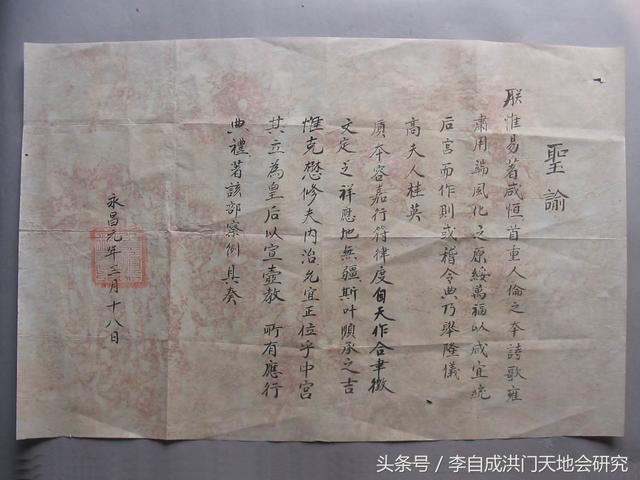 聖諭
朕惟易著咸恒首重人倫之本詩歌雍
肅用端風化之原綏萬福以咸宜統
后宮而作則式稽令典乃舉隆儀
高夫人桂英
質本容嘉行符律度自天作合聿徵
文定之祥應地無疆斯叶順承之吉
惟克懋修夫內治允宜正位乎中宮
其立為皇后以宣壼教所有應行
典禮著該部察例具奏
永昌元年二月十八日
头条号／李自成洪门天地会研究